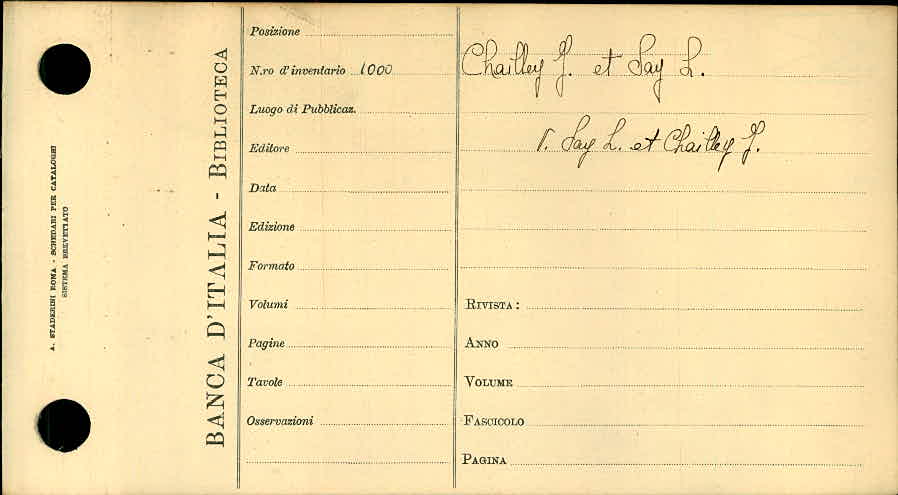 A. STADERINI ROMA - SCHEDARI PER CATALOGHI
SISTEMA BREVETTATO
BANCA D'ITALIA - BIBLIOTECA
Posizione
N.ro d'inventario 1000
Luogo di Pubblicaz.
Editore
Data
Edizione
Formato
Volumi
Pagine
Tavole
Osservazioni
Chailley J. et Say L.
v. Say L. et Chailley J.
RIVISTA:
ANNO
VOLUME
FASCICOLO
PAGINA